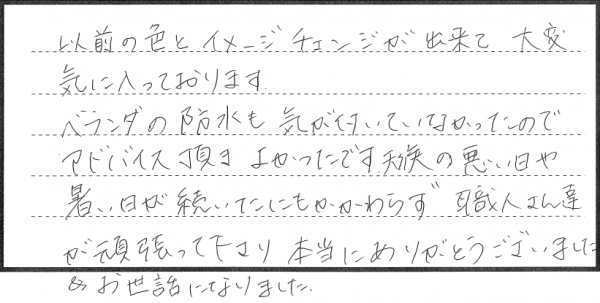 以前の色とイメージチェンジが出来て 大変
気に入っております。
ベランダの防水も 気が付いていなかったので
アドバイス頂き よかったです。天候の悪い日や
暑い日が続いたにもかかわらず 職人さん達
が頑張って下さり 本当にありがとうございました
お世話になりました。